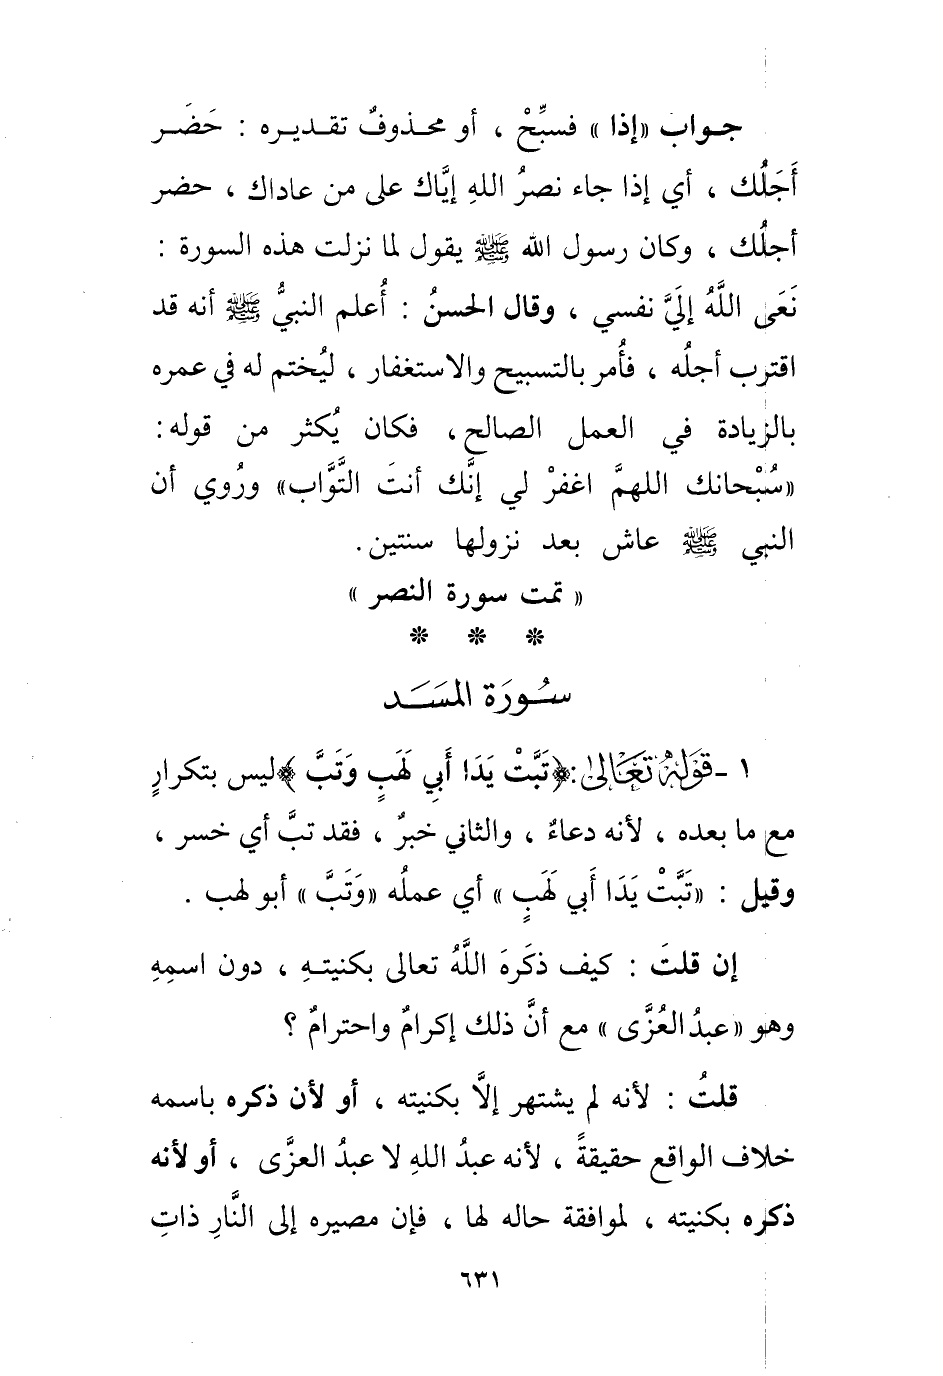 جواب «إذا» فسبِّحْ ، أو محذوفٌ تقديره : حَضَر
أَجَلُك ، أي إذا جاء نصرُ اللهِ إيَّاك على من عاداك ، حضر
أجلُك ، وكان رسول الله ﷺ يقول لما نزلت هذه السورة :
نَعَى اللَّهُ إليَّ نفسي ، وقال الحسنُ : أُعلم النبيُّ ﷺ أنه قد
اقترب أجلُه ، فأُمر بالتسبيح والاستغفار ، ليُختم له في عمره
بالزيادة في العمل الصالح، فكان يُكثر من قوله:
«سُبْحانك اللهمَّ اغفرْ لي إنَّك أنتَ التَّوَّاب» ورُوي أن
النبي ﷺ عاش بعد نزولها سنتين.
« تمت سورة النصر »
* * *
سُورَة المَسَد
١ - قَوْلُهُ تَعَالىٰ : ﴿تَبَّتْ يَدَا أَبِي لَهَبٍ وَتَبَّ﴾ ليس بتكرارٍ
مع ما بعده ، لأنه دعاءٌ ، والثاني خبرٌ ، فقد تبَّ أي خسر ،
وقيل : «تَبَّتْ يَدَا أَبي لَهَبٍ » أي عملُه «وَتَبَّ » أبو لهب .
إن قلتَ : كيف ذكَرهَ اللَّهُ تعالى بكنيتهِ ، دون اسمِهِ
وهو «عبدُ العُزَّى » مع أنَّ ذلك إكرامٌ واحترامٌ ؟
قلتُ : لأنه لم يشتهر إلَّا بكنيته ، أو لأن ذكره باسمه
خلاف الواقع حقيقةً ، لأنه عبدُ اللهِ لا عبدُ العزَّى ، أو لأنه
ذكره بكنيته ، لموافقة حاله لها ، فإن مصيره إلى النَّارِ ذاتِ
٦٣١